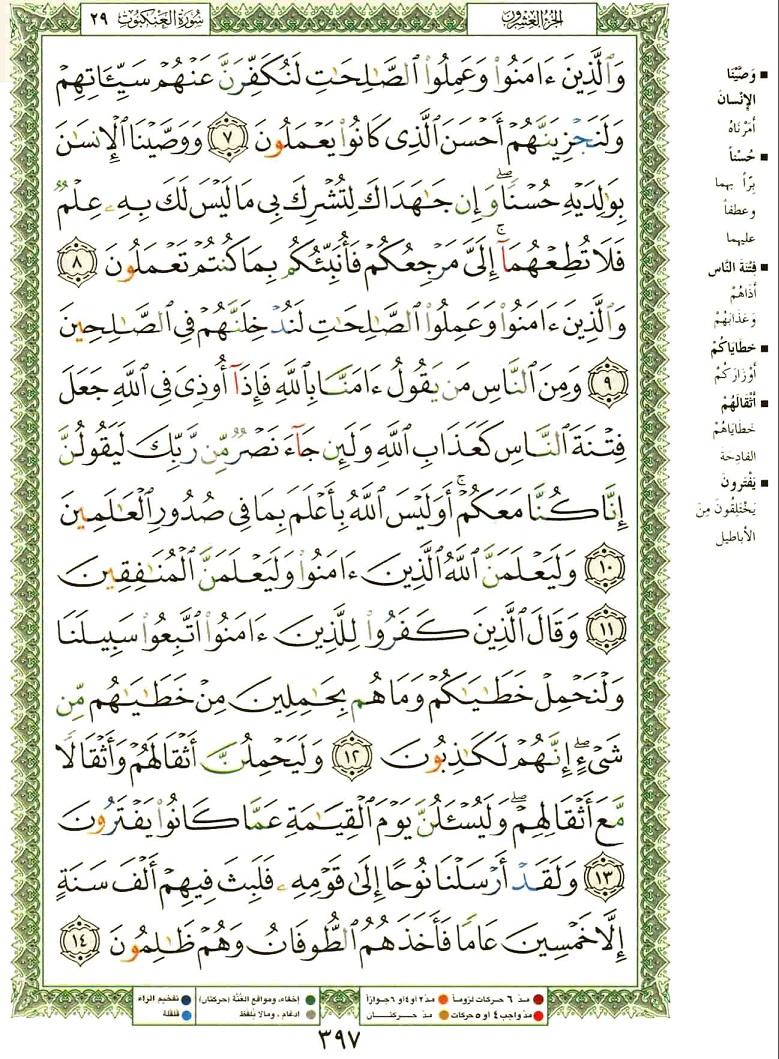 سُورَةُ العَنكبُوتِ ٢٩
الجُزءُ العِشرُون
وَٱلَّذِينَ ءَامَنُوا۟ وَعَمِلُوا۟ ٱلصَّـٰلِحَـٰتِ لَنُكَفِّرَنَّ عَنْهُمْ سَيِّـَٔاتِهِمْ
وَلَنَجْزِيَنَّهُمْ أَحْسَنَ ٱلَّذِى كَانُوا۟ يَعْمَلُونَ ٧ وَوَصَّيْنَا ٱلْإِنسَـٰنَ
بِوَٰلِدَيْهِ حُسْنًا ۖ وَإِن جَـٰهَدَاكَ لِتُشْرِكَ بِى مَا لَيْسَ لَكَ بِهِۦ عِلْمٌ
فَلَا تُطِعْهُمَآ ۚ إِلَىَّ مَرْجِعُكُمْ فَأُنَبِّئُكُم بِمَا كُنتُمْ تَعْمَلُونَ ٨
وَٱلَّذِينَ ءَامَنُوا۟ وَعَمِلُوا۟ ٱلصَّـٰلِحَـٰتِ لَنُدْخِلَنَّهُمْ فِى ٱلصَّـٰلِحِينَ
٩ وَمِنَ ٱلنَّاسِ مَن يَقُولُ ءَامَنَّا بِٱللَّهِ فَإِذَآ أُوذِىَ فِى ٱللَّهِ جَعَلَ
فِتْنَةَ ٱلنَّاسِ كَعَذَابِ ٱللَّهِ وَلَئِن جَآءَ نَصْرٌ مِّن رَّبِّكَ لَيَقُولُنَّ
إِنَّا كُنَّا مَعَكُمْ ۚ أَوَلَيْسَ ٱللَّهُ بِأَعْلَمَ بِمَا فِى صُدُورِ ٱلْعَـٰلَمِينَ
١٠ وَلَيَعْلَمَنَّ ٱللَّهُ ٱلَّذِينَ ءَامَنُوا۟ وَلَيَعْلَمَنَّ ٱلْمُنَـٰفِقِينَ
١١ وَقَالَ ٱلَّذِينَ كَفَرُوا۟ لِلَّذِينَ ءَامَنُوا۟ ٱتَّبِعُوا۟ سَبِيلَنَا
وَلْنَحْمِلْ خَطَـٰيَـٰكُمْ وَمَا هُم بِحَـٰمِلِينَ مِنْ خَطَـٰيَـٰهُم مِّن
شَىْءٍ ۖ إِنَّهُمْ لَكَـٰذِبُونَ ١٢ وَلَيَحْمِلُنَّ أَثْقَالَهُمْ وَأَثْقَالًا
مَّعَ أَثْقَالِهِمْ ۖ وَلَيُسْـَٔلُنَّ يَوْمَ ٱلْقِيَـٰمَةِ عَمَّا كَانُوا۟ يَفْتَرُونَ
١٣ وَلَقَدْ أَرْسَلْنَا نُوحًا إِلَىٰ قَوْمِهِۦ فَلَبِثَ فِيهِمْ أَلْفَ سَنَةٍ
إِلَّا خَمْسِينَ عَامًا فَأَخَذَهُمُ ٱلطُّوفَانُ وَهُمْ ظَـٰلِمُونَ ١٤
■ وَصَّيْنَا
الإنْسانَ
أمَرْنَاهُ
■ حُسْناً
بِرّاً بهما
وعطفاً
عليهما
■ فِتنَةَ النَّاسِ
أذَاهُمْ
وَعَذَابَهُمْ
■ خطاياكُمْ
أوْزَارَكُمْ
■ أثقالَهُمْ
خَطَاياهُمْ
الفادِحَة
■ يَفْترونَ
يَخْتلِقُونَ مِنَ
الأباطيل
مدّ ٦ حركات لزوماً
مدّ ٢ أو ٤ أو ٦ جوازاً
مدّ واجب ٤ أو ٥ حركات
مدّ حركتان
إخفاء، ومواقع الغُنَّة (حركتان)
ادغام، ومالا يُلفَظ
تفخيم الراء
قلقلة
٣٩٧